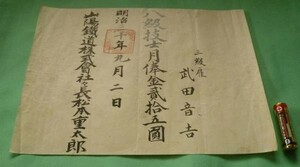 二級疋
武田音吉
八級技士月俸金貳拾五圓
明治 十年九月二日
山陽鐵道株式會社々長松本重太郎